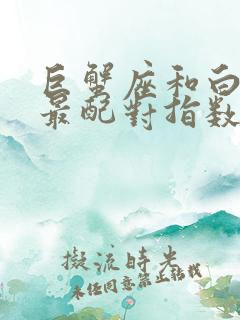 巨蟹座和白
最配對指數
擬流時光
未经同意禁止转载